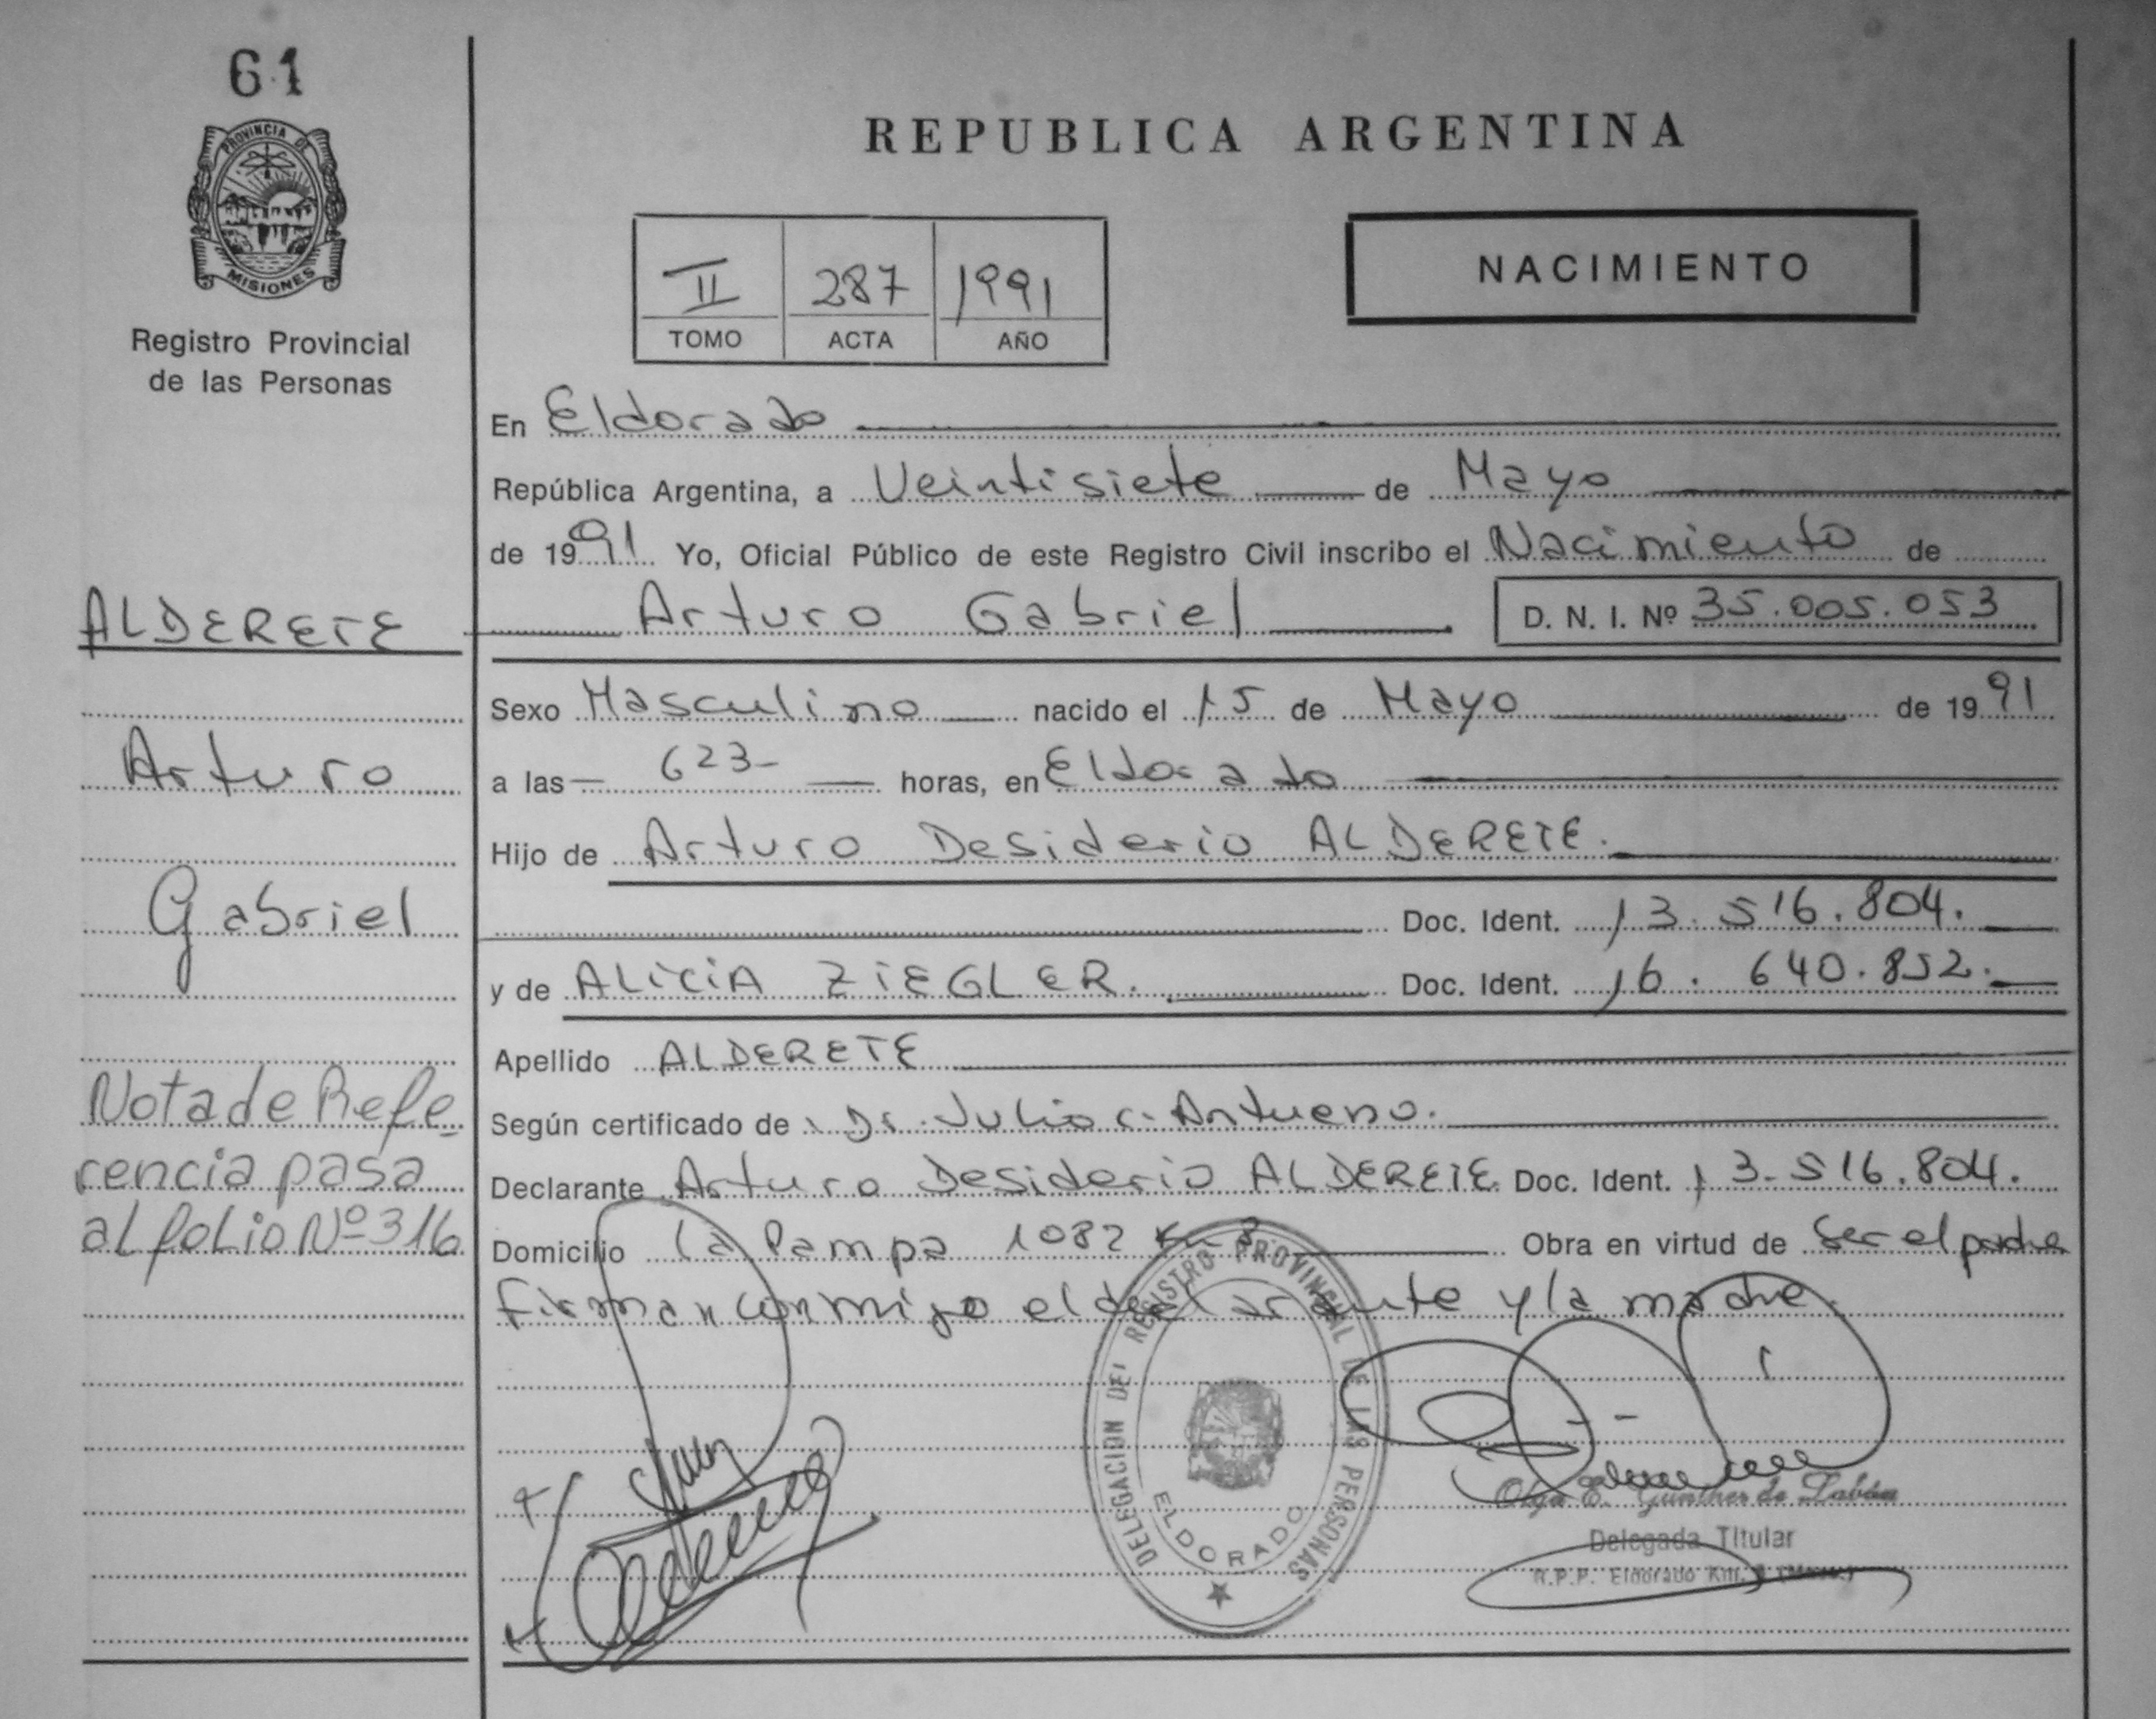 61
PROVINCIA DE
MISIONES
Registro Provincial
de las Personas
ALDERETE
Arturo
Gabriel
Nota de Refe-
rencia pasa
al folio Nº 316
REPUBLICA ARGENTINA
II 287 1991
TOMO ACTA AÑO
NACIMIENTO
En Eldorado
República Argentina, a Veintisiete de Mayo
de 1991 Yo, Oficial Público de este Registro Civil inscribo el Nacimiento de
Arturo Gabriel D. N. I. Nº 35.005.053
Sexo Masculino nacido el 15 de Mayo de 1991
a las 623 horas, en Eldorado
Hijo de Arturo Desiderio ALDERETE.
Doc. Ident. 13.516.804.
y de ALICIA ZIEGLER. Doc. Ident. 16.640.852.
Apellido ALDERETE
Según certificado de Dr. Julio C. Antueno.
Declarante Arturo Desiderio ALDERETE Doc. Ident. 13.516.804.
Domicilio La Pampa 1082 Obra en virtud de Ser el padre
firman conmigo el declarante y la madre.
DELEGACION DEL REGISTRO PROVINCIAL DE LAS PERSONAS
ELDORADO
Olga E. Gunther de Labán
Delegada Titular
R.P.P. Eldorado Km.